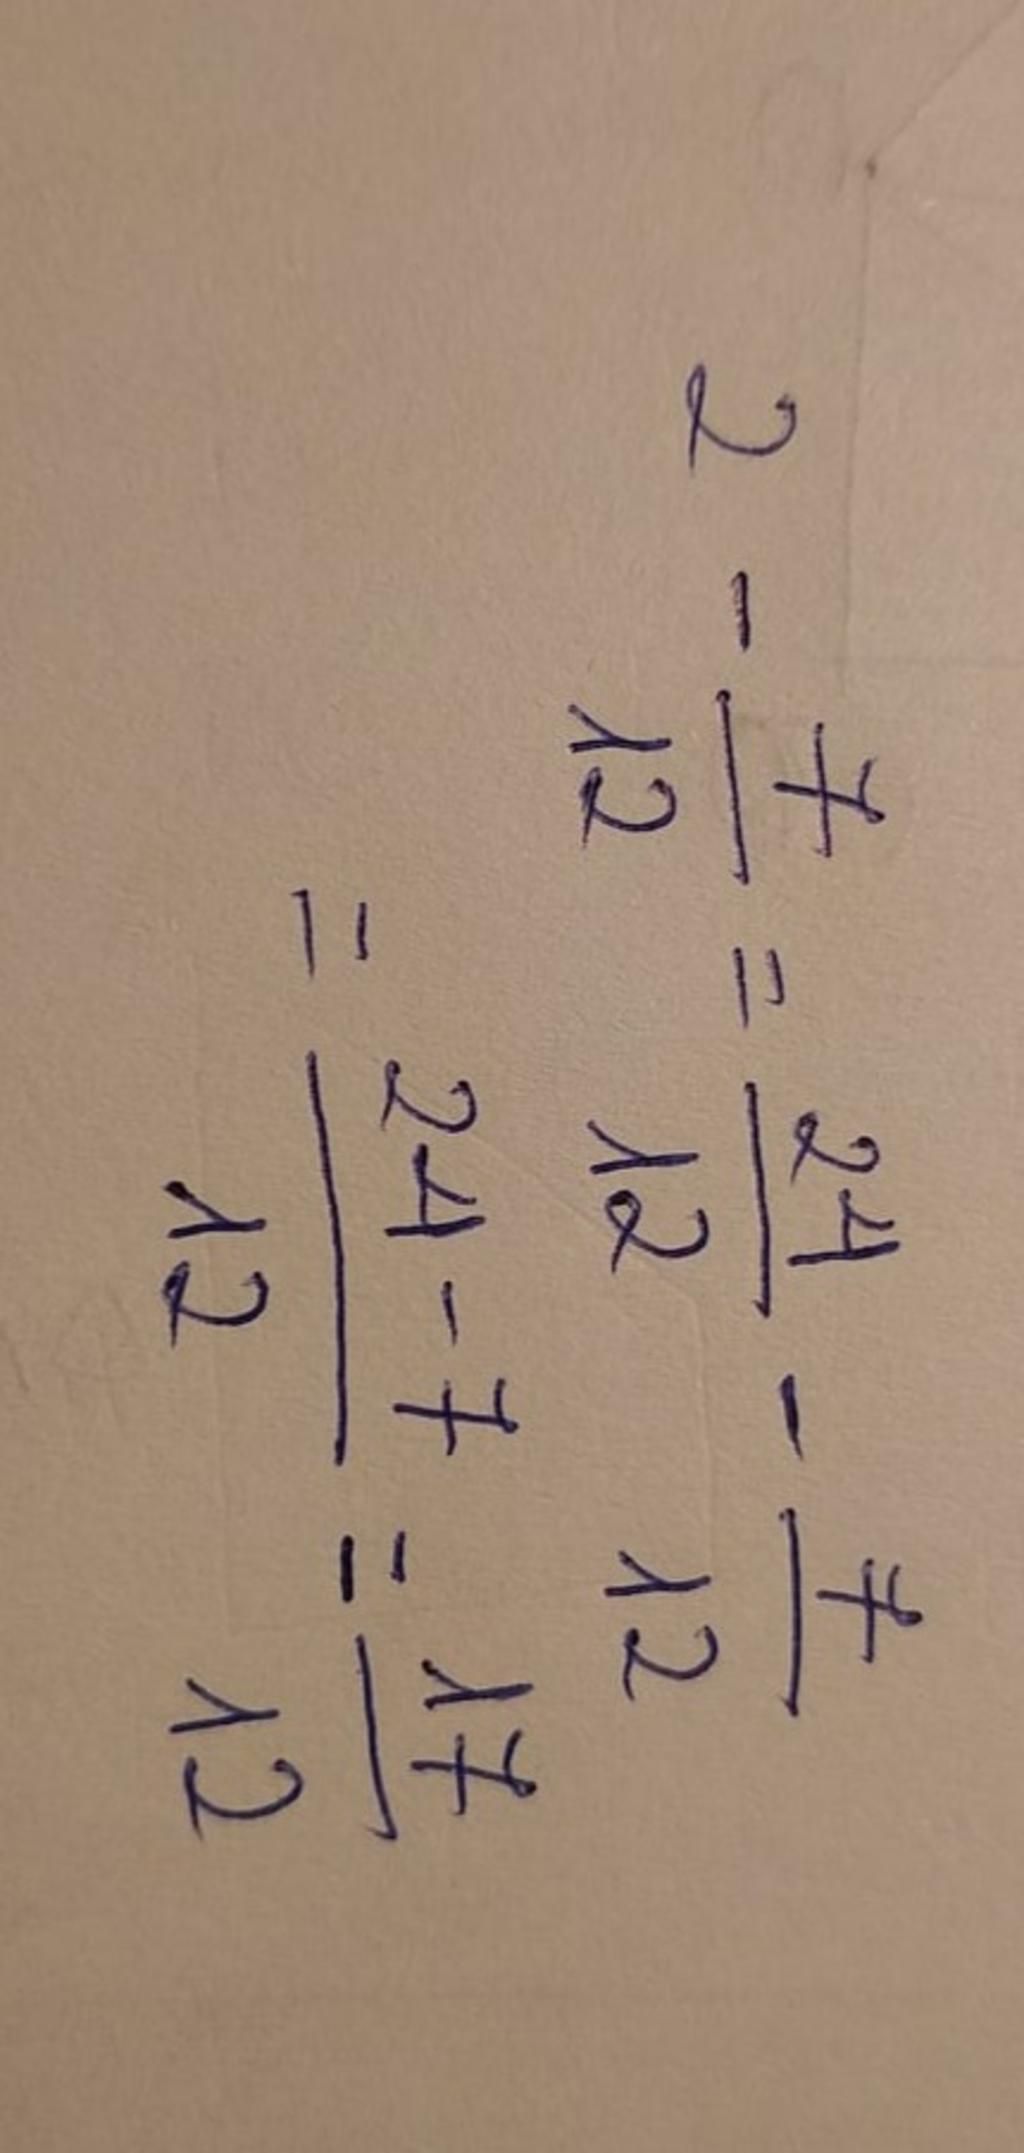 2 - 7/12 = 24/12 - 7/12
= 24-7/12 = 17/12